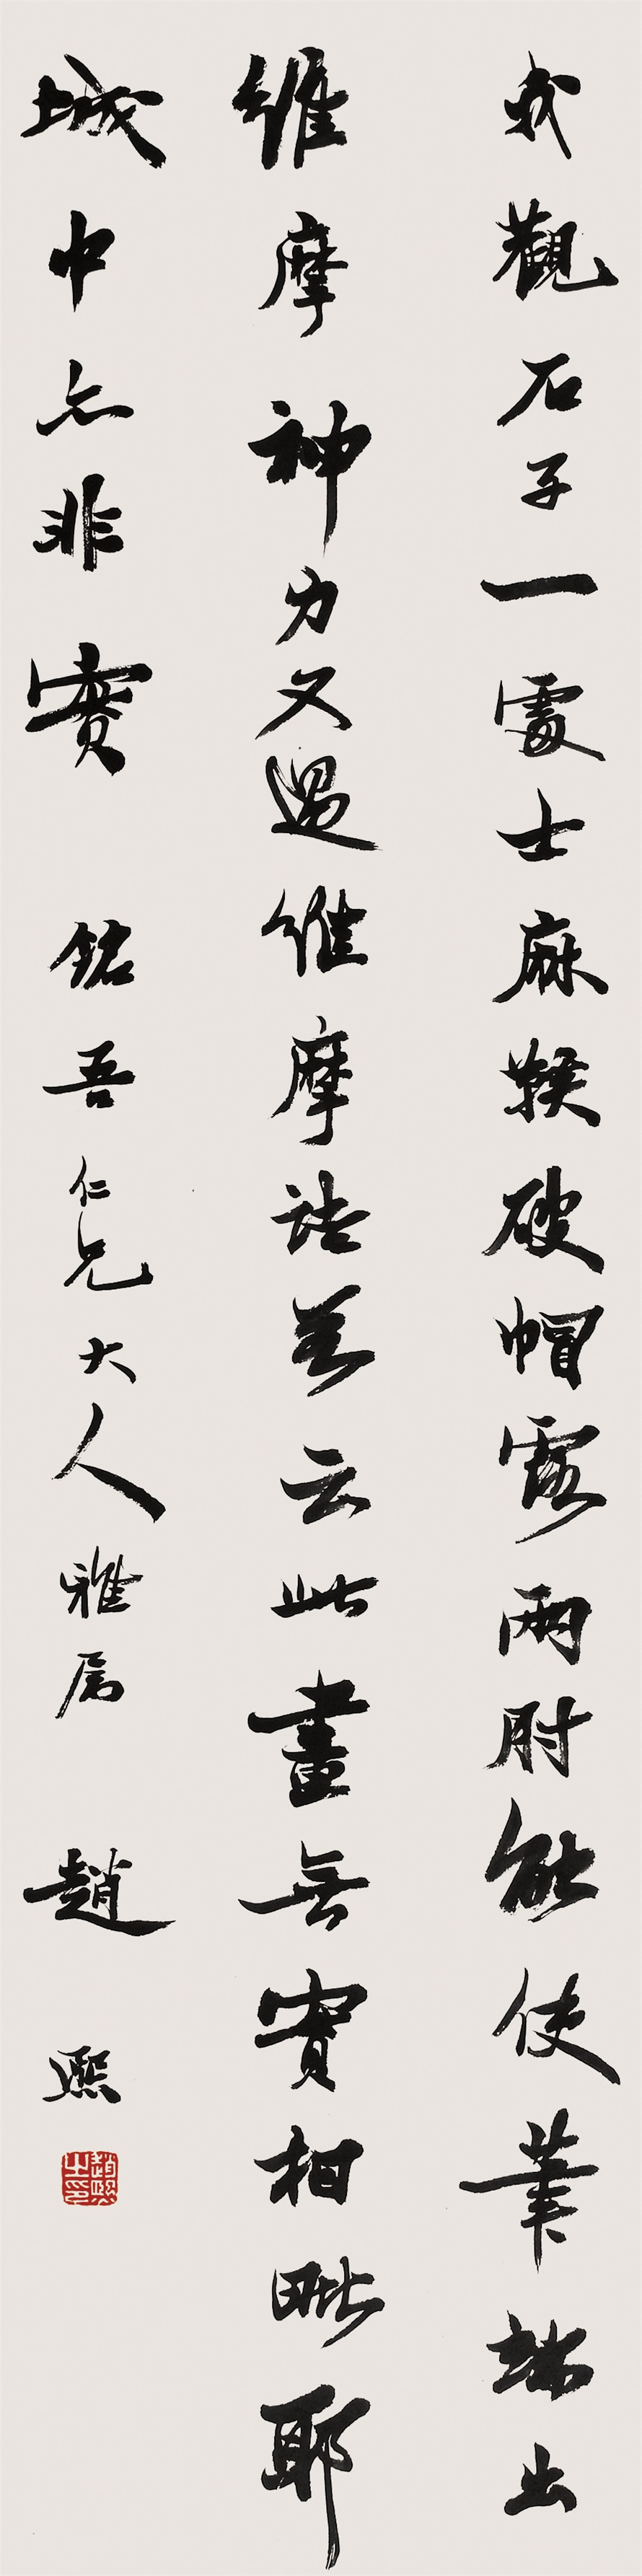 我觀石子一處士麻鞵破帽露兩肘能使筆端出
維摩神力又過維摩詰若云此畫無實相毗耶
城中亦非實 銘吾仁兄大人雅屬 趙熙
趙熙之印